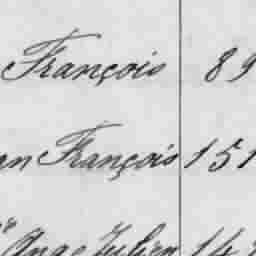 François 89
an François 151
Ange Julien 14